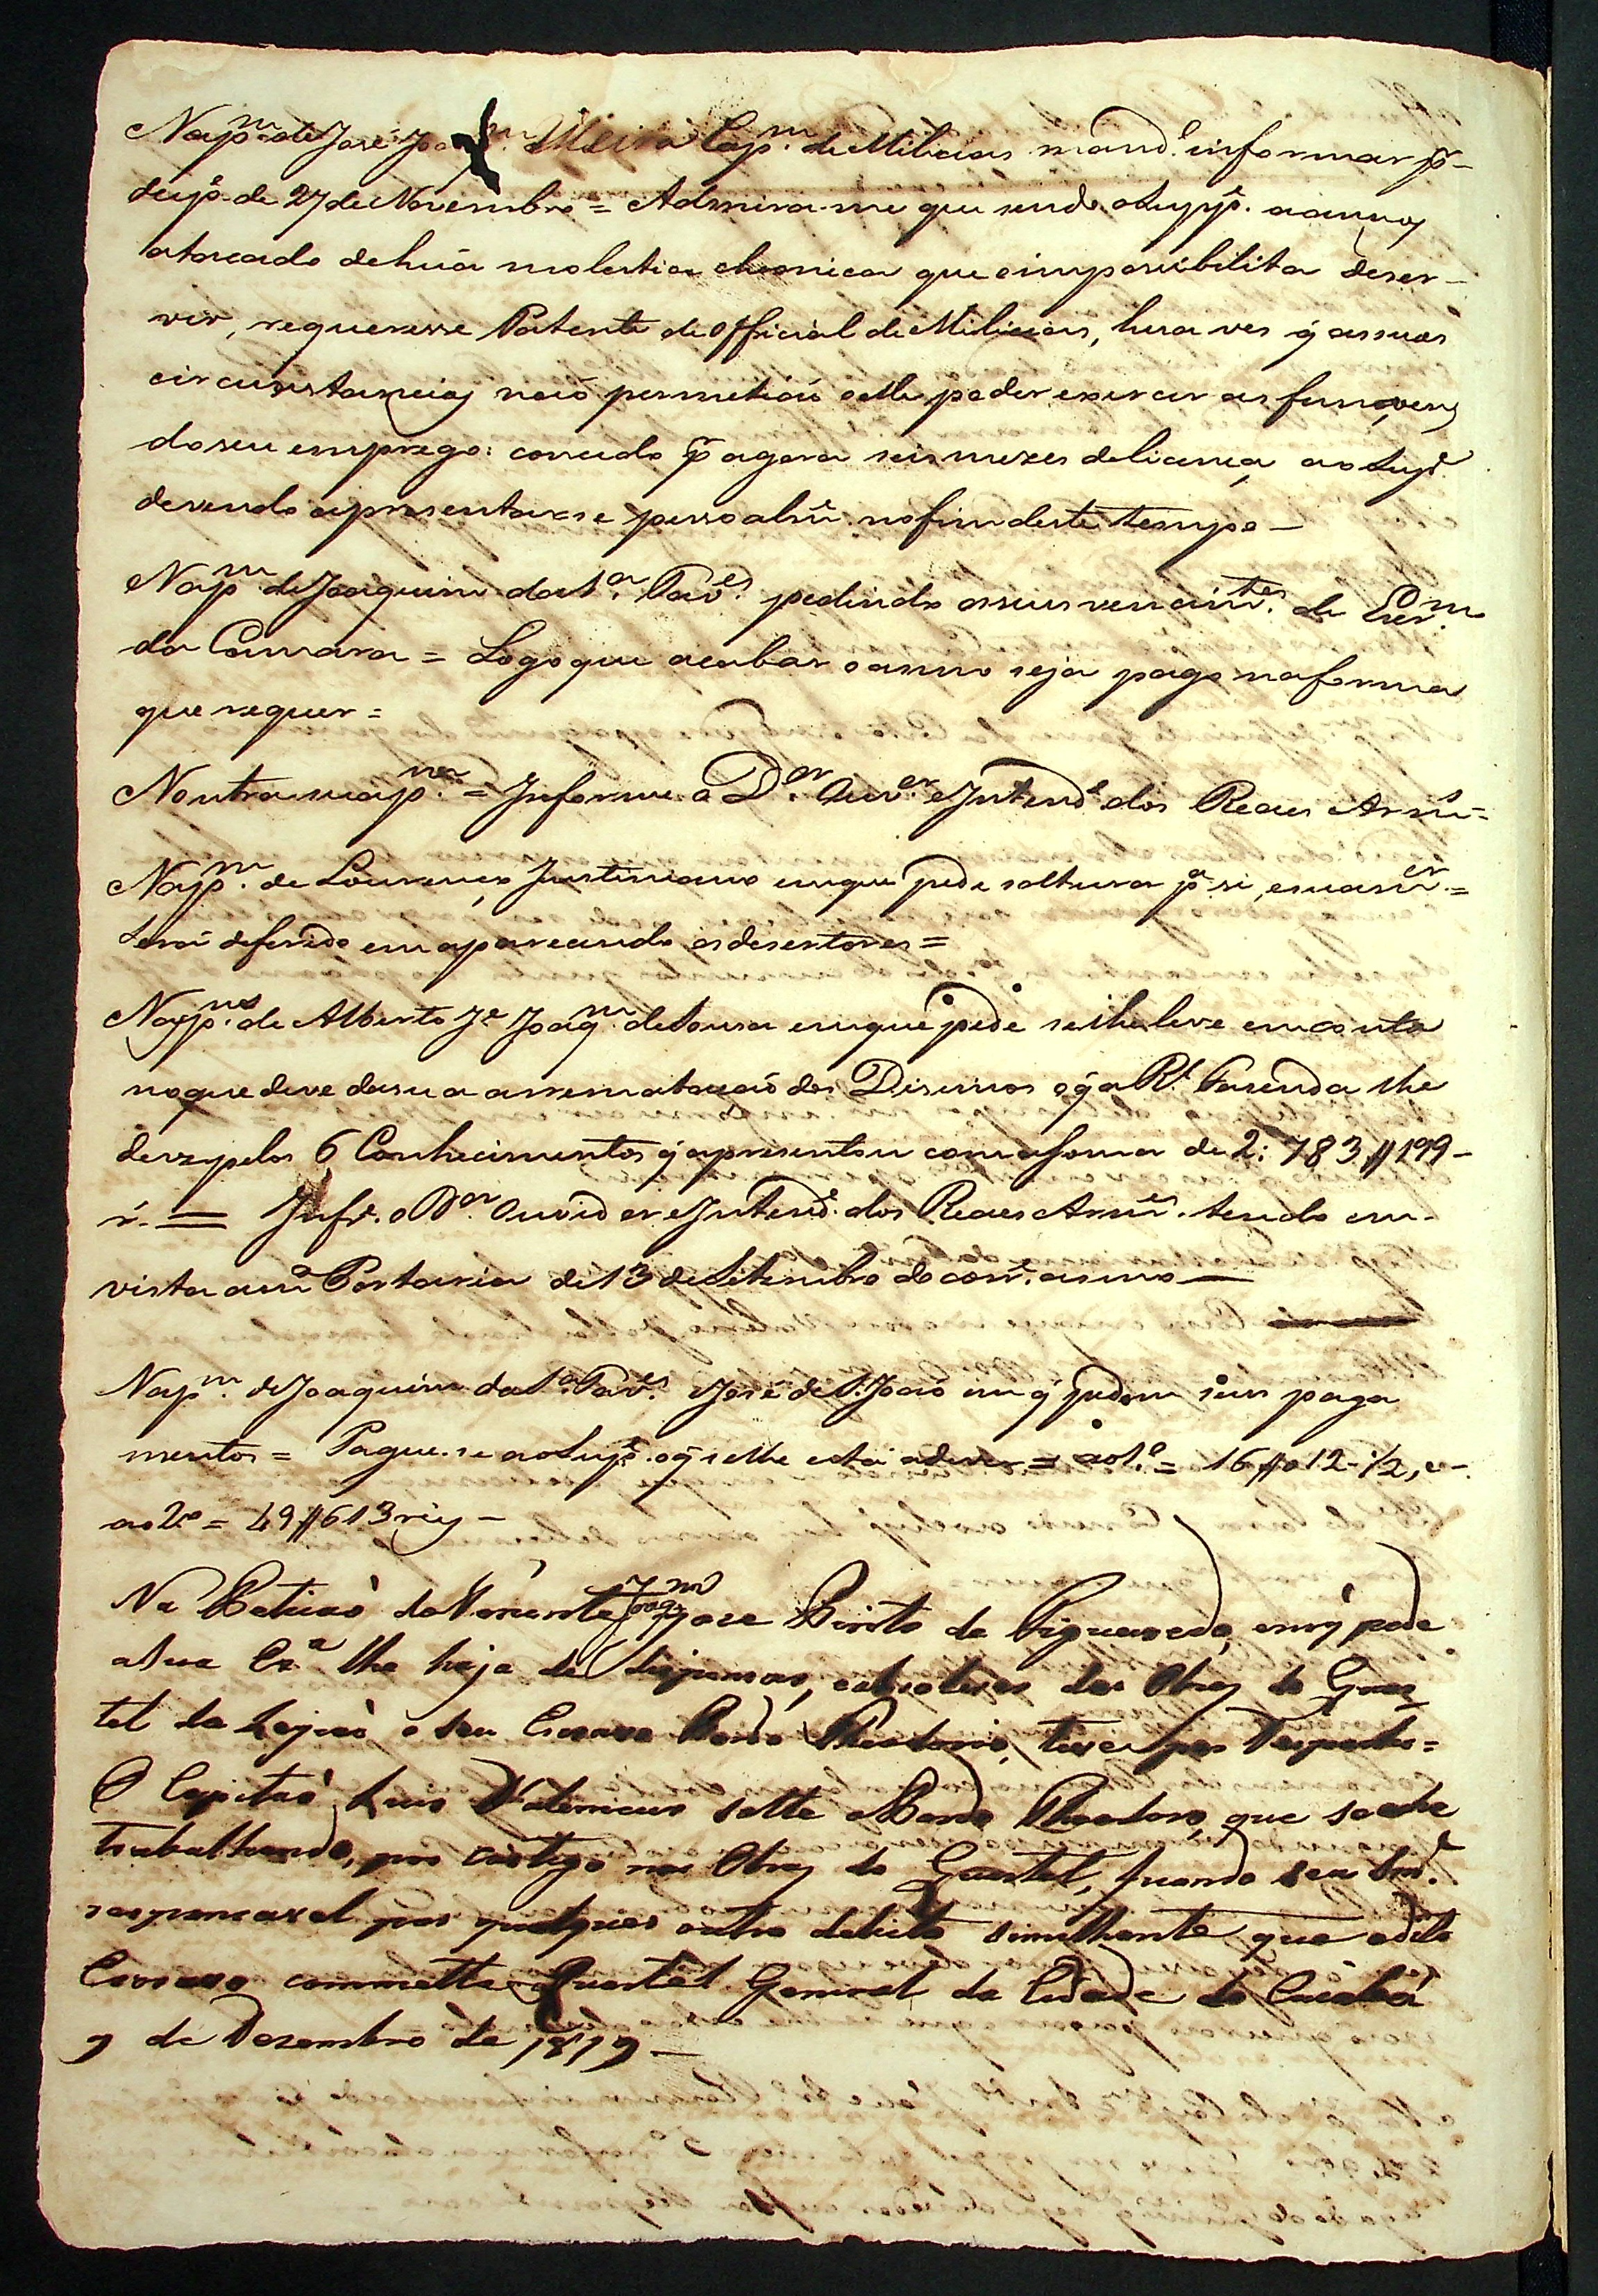 Na p.m de José Joa m. Meira Cap.m de Milicias mand.o informar p.r
desp.o de 27 de Novembro = Admira-me que sendo o Supp.e a annos
atacado de huã molestia chronica que o imposibilita de ser-
vir, requeresse Patente de Official de Milicias, huã ves q̃ as suas
circunstancias naõ permetiaõ o elle poder exercer as funçoens
do seu emprego: concedo p.r agora seis mezes de licença ao Sup.e
devendo apresentarse pessoalm.e no fim deste tempo —
Na p.m de Joaquim da S.a Tav.es pedindo os seus vencim.tos de Escr.m
da Camara = Logo que acabar o anno seja pago na forma
que requer =
N'outra mesma p.m = Informe o D.or Ouv.or e Intend.e dos Reaes Arm.s =
Na p.m de Lourenço Justiniano em que pede soltura p.a si, e sua m.er =
Será deferido em aparecendo os desertores =
Na p.m de Alberto J.e Joaq.m de Sousa em que pede se lhe leve em conta
no que deve da sua arrematação dos Disimos o q̃ a R.l Fasenda lhe
deve pelos 6 Conhecimentos q̃ apresentou com a soma de 2:783$199-
r.s = Inf.e o D.or Ouvidor e Intend.e dos Reaes Arm.s tendo em
vista a m.a Portaria de 13 de Setembro do corr.e anno —
Na p.m de Joaquim da S.a Tav.es e José de S. João em q̃ pedem seus paga
mentos = Pague-se ao Sup.e o q̃ se lhe está a dever = ao 1.o = 16$012-1/2, e-
ao 2.o = 49$613 reis —
Na Petiçaõ do Tenente Joaq.m Jose Pinto de Figueiredo, em q̃ pede
a Sua Ex.a lhe haja de dispensar, e absolver das Obras do Quar
tel da Legiaõ o seu Escravo Pardo Theodorio, teve por Despacho =
O Capitaõ Luis Valeriano solte o Pardo Theodoro, que se acha
trabalhando, por castigo nas Obras do Quartel, ficando seu Snr.
responsavel por qualquer outro delicto simelhante que o dito
Escravo commetta Quartel General da Cidade do Cuiabá
9 de Dezembro de 1819 —